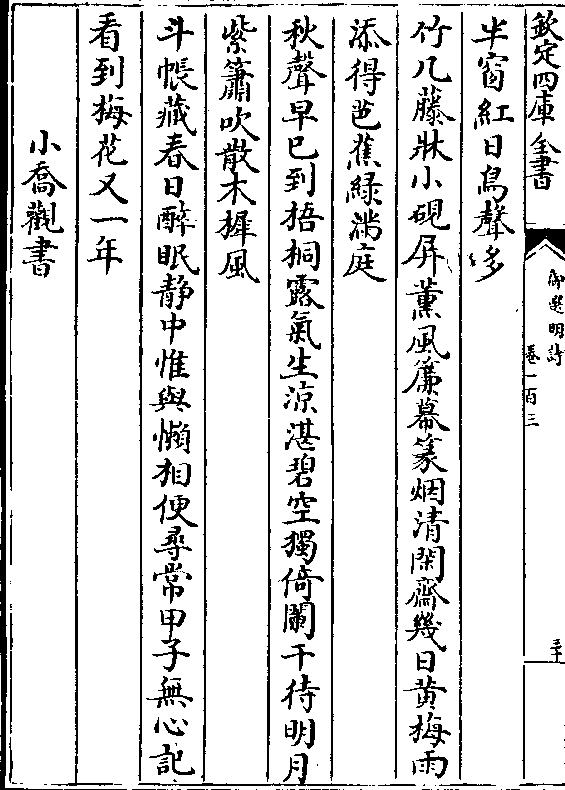 欽定四庫全書
御選明詩
卷一百三
三十
半窗紅日鳥聲多
竹几藤牀小硯屏薰風簾幕篆烟清閑齋幾日黄梅雨
添得芭蕉緑滿庭
秋聲早已到梧桐露氣生涼湛碧空獨倚闌干待明月
紫簫吹散木樨風
斗帳藏春日醉眠静中惟與懶相便尋常甲子無心記
看到梅花又一年
小喬觀書